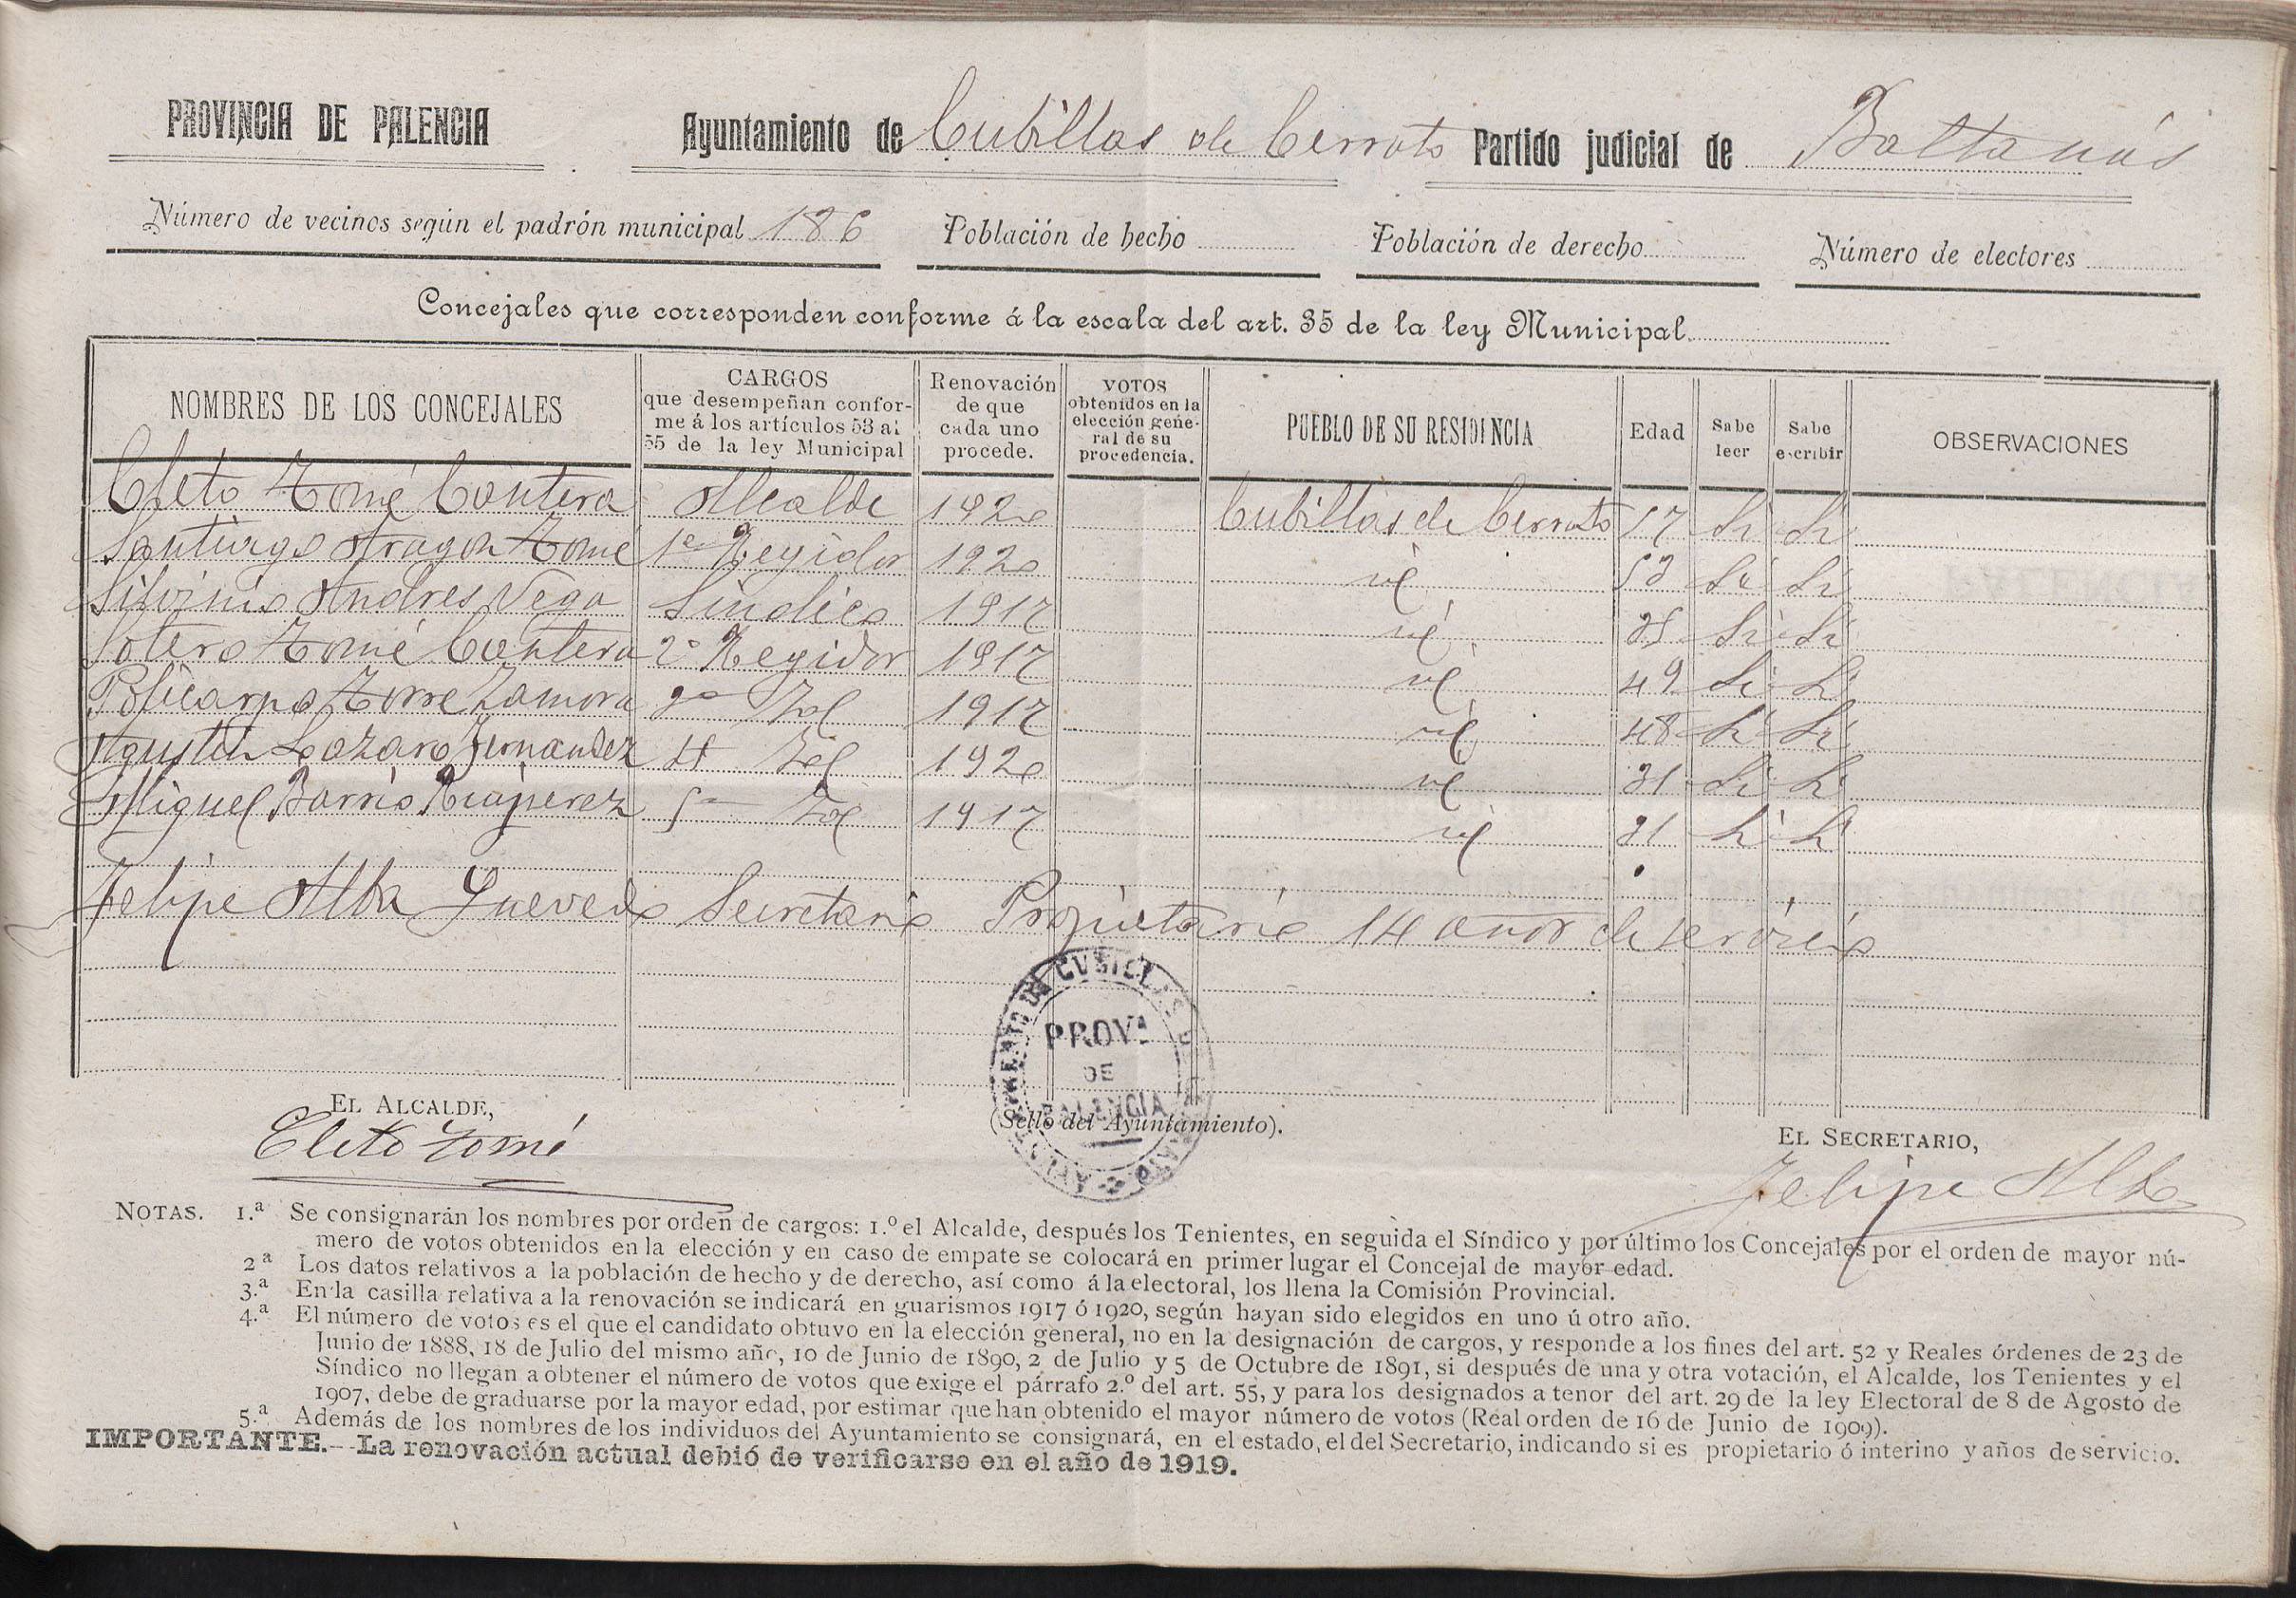 PROVINCIA DE PALENCIA Ayuntamiento de Cubillas de Cerrato Partido judicial de Baltanás
Número de vecinos según el padrón municipal 186 Población de hecho Población de derecho Número de electores
Concejales que corresponden conforme á la escala del art. 35 de la ley Municipal
NOMBRES DE LOS CONCEJALES CARGOS que desempeñan conforme á los artículos 53 al 55 de la ley Municipal Renovación de que cada uno procede. VOTOS obtenidos en la elección general de su procedencia. PUEBLO DE SU RESIDENCIA Edad Sabe leer Sabe escribir OBSERVACIONES
Cleto Tomé Cantera Alcalde 1920 Cubillas de Cerrato 57 Si Si
Santiago Aragon Tomé 1er Regidor 1920 id 53 Si Si
Silvinio Andres Vega Sindico 1917 id 35 Si Si
Sotero Tomé Cantera 2º Regidor 1917 id 49 Si Si
Policarpo Torre Zamora 3º id 1917 id 48 Si Si
Agustin Lazaro Fernandez 4 id 1920 id 31 Si Si
Miguel Barrio 5º id 1917 id 31 Si Si
Felipe Alba Quevedo Secretario Propietario 14 años de servicio
AYUNTAMIENTO DE CUBILLAS DE CERRATO
PROVª
DE
PALENCIA
EL ALCALDE,
Cleto Tomé
(Sello del Ayuntamiento).
EL SECRETARIO,
Felipe Alba
NOTAS. 1.ª Se consignarán los nombres por orden de cargos: 1.º el Alcalde, después los Tenientes, en seguida el Síndico y por último los Concejales por el orden de mayor nú-
mero de votos obtenidos en la elección y en caso de empate se colocará en primer lugar el Concejal de mayor edad.
2ª Los datos relativos a la población de hecho y de derecho, así como á la electoral, los llena la Comisión Provincial.
3.ª En la casilla relativa a la renovación se indicará en guarismos 1917 ó 1920, según hayan sido elegidos en uno ú otro año.
4.ª El número de votos es el que el candidato obtuvo en la elección general, no en la designación de cargos, y responde a los fines del art. 52 y Reales órdenes de 23 de
Junio de 1888, 18 de Julio del mismo año, 10 de Junio de 1890, 2 de Julio y 5 de Octubre de 1891, si después de una y otra votación, el Alcalde, los Tenientes y el
Síndico no llegan a obtener el número de votos que exige el párrafo 2.º del art. 55, y para los designados a tenor del art. 29 de la ley Electoral de 8 de Agosto de
1907, debe de graduarse por la mayor edad, por estimar que han obtenido el mayor número de votos (Real orden de 16 de Junio de 1909).
5.ª Además de los nombres de los individuos del Ayuntamiento se consignará, en el estado, el del Secretario, indicando si es propietario ó interino y años de servicio.
IMPORTANTE.--La renovación actual debió de verificarse en el año de 1919.